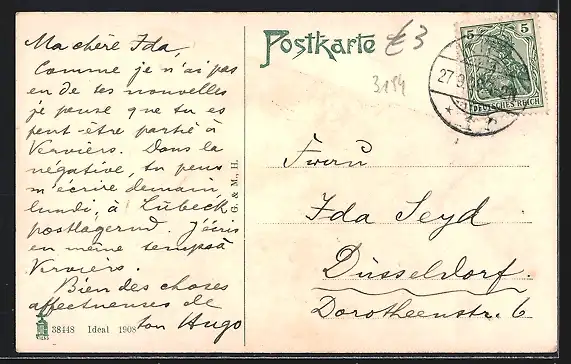 Ma chère Ida,
Comme je n'ai pas
en de tes nouvelles
je pense que tu es
peut-être partie à
Verviers. Dans la
négative, tu peux
m'écrire demain
lundi, à Lübeck
postlagernd. J'écris
en même temps à
Verviers.
Bien des choses
affectueuses de
ton Hugo
38448 Ideal 1908
G. & M., H.
Postkarte
£3
3194
5 5
DEUTSCHES REICH
27.9.
Frau
Ida Seyd
Düsseldorf.
Dorotheenstr. 6